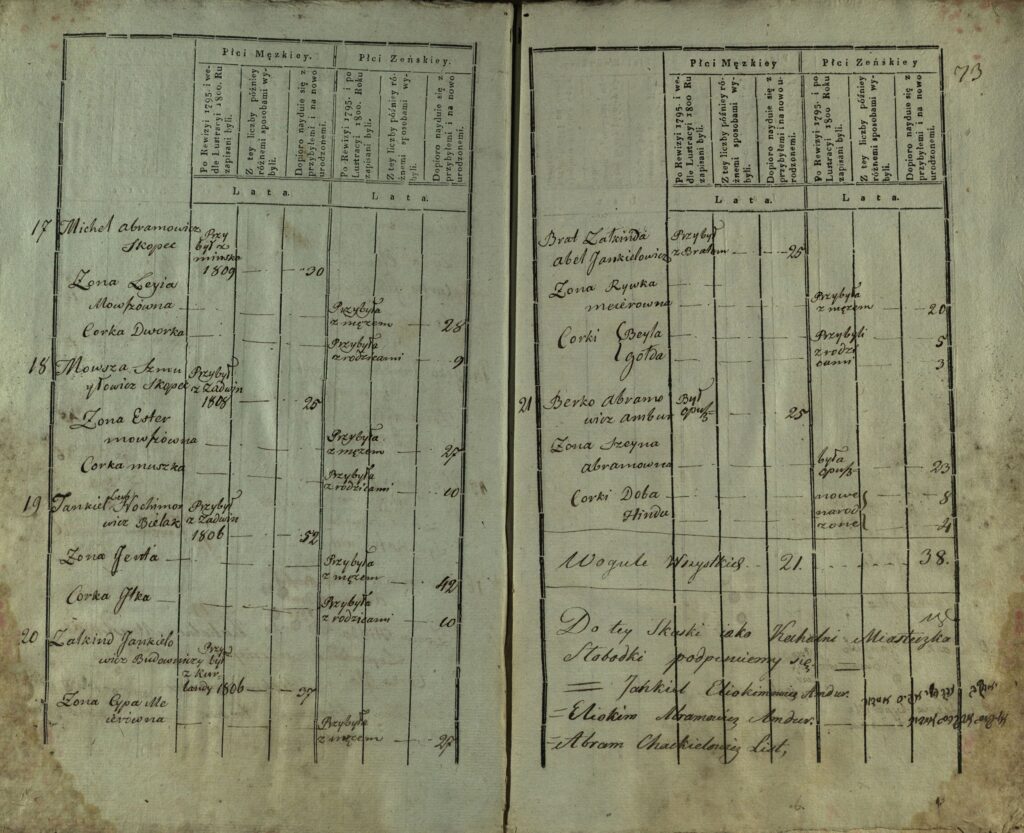 Płci Męzkiey.
Płci Zeńskiey.
Po Rewizyi 1795. i we-
dle Lustracyi 1800. Ru
zapisani byli.
Z tey liczby poźniey
różnemi sposobami wy-
byli.
Dopioro nayduie się z
przybyłemi i na nowo
urodzonemi.
Po Rewizyi 1795. i po
Lustracyi 1800. Roku
zapisani byli.
Z tey liczby poźniey ró-
żnemi sposobami wy-
byli.
Dopioro nayduie się z
przybyłemi i na nowo
urodzonemi.
Lata.
Lata.
17 Michel Abramowicz
Skopec
Przy
był z
minska
1809
30
Zona Leyia
Mowszówna
Przybyła
z mężem
28
Corka Dworka
Przybyła
z rodzicami
9
18 Mowsza Szmu
yłowicz Skopec
Przybył
z Zadwin
1808
25
Zona Ester
mowszówna
Przybyła
z mężem
27
Corka muszka
Przybyła
z rodzicami
10
19 Jankiel Nochimo
wicz Bielak
Przybył
z Zadwin
1806
52
Zona Jenta
Przybyła
z mężem
42
Corka Gtka
Przybyła
z rodzicami
10
20 Zalkind Jankielo
wicz Budowniczy
Przy
był
z Kur
landy 1806
37
Zona Cypa Me
ierowna
Przybyła
z mężem
27
73
Płci Męzkiey
Płci Zeńskiey
Po Rewizyi 1795. i we-
dle Lustracyi 1800 Roku
zapisani byli.
Z tey liczby poźniey ró-
żnemi sposobami wy-
byli.
Dopioro nayduie się z
przybyłemi i na nowo u-
rodzonemi.
Po Rewizyi 1795. i po
Lustracyi 1800. Roku
zapisani byli.
Z tey liczby poźniey
różnemi sposobami wy-
byli.
Dopioro nayduie się z
przybyłemi i na nowo
urodzonemi.
Lata.
Lata.
Brat Zalkinda
abel Jankielowicz
Przybył
z Bratem
25
Zona Rywka
meierowna
Przybyła
z mężem
20
Corki Beyla
Gołda
Przybyli
z rodzi
cami
5
3
21 Berko Abramo
wicz ambur
Był
opusz
25
Zona Szeyna
abramowna
była
opusz
23
Corki Doba
Hinda
nowo
narod
zone
8
4
Wogule Wszystkich 21. 38.
Do tey Skaski iako Kahalni Miasteczka
Słobodki podpiniemy się.
Jankiel Eliokimowicz Amdur.
Eliokim Abramowicz Amdur.
Abram Chackielowicz List;